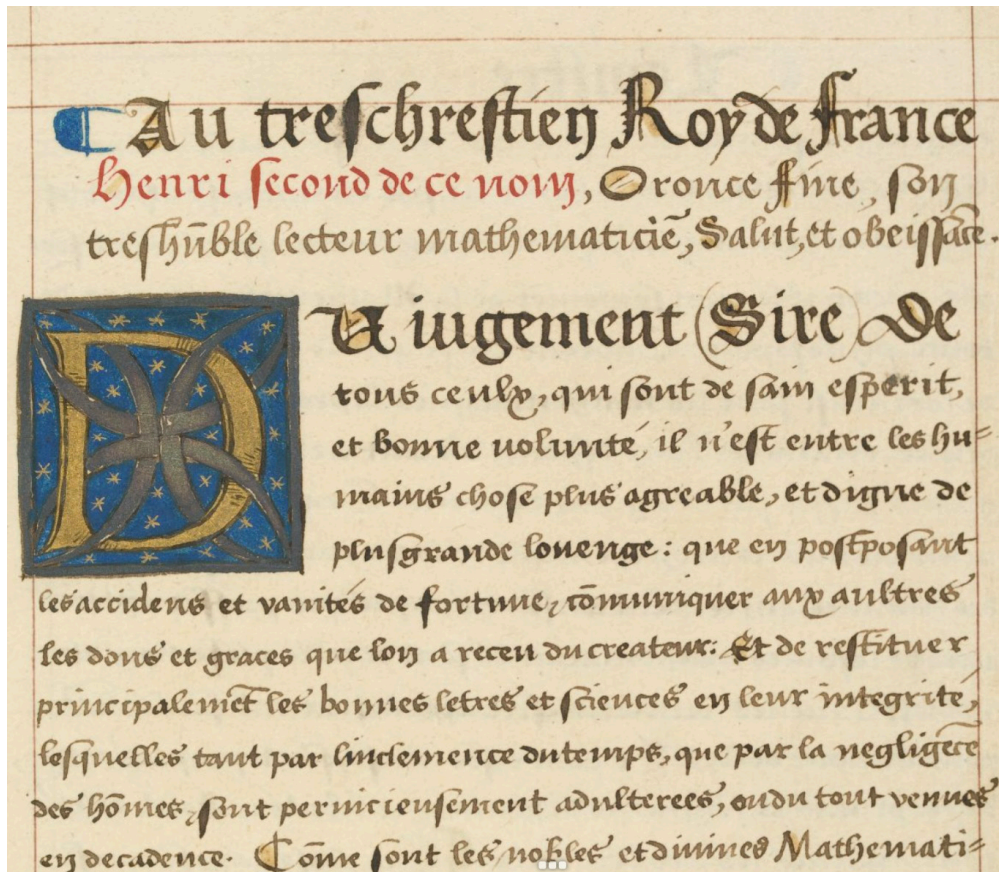 ¶ Au treschrestien Roy de France
Henri second de ce nom, Oronce fine, son
treshūble lecteur mathematiciē, Salut, et obeissāce.
DU iugement (Sire) De
tous ceulx, qui sont de sain esperit,
et bonne volunté, il n'est entre les hu=
mains chose plus agreable, et digne de
plus grande louenge: que en postposant
les accidens et vanités de fortune, cōmuniquer aux aultres
les dons et graces que lon a receu du createur: Et de restituer
principalemēt les bonnes letres et sciences en leur integrité,
lesquelles tant par linclemence du temps, que par la negligēce
des hōmes, sont pernicieusement adulterees, ou du tout venues
en decadence. Cōme sont les nobles et divines Mathemati=